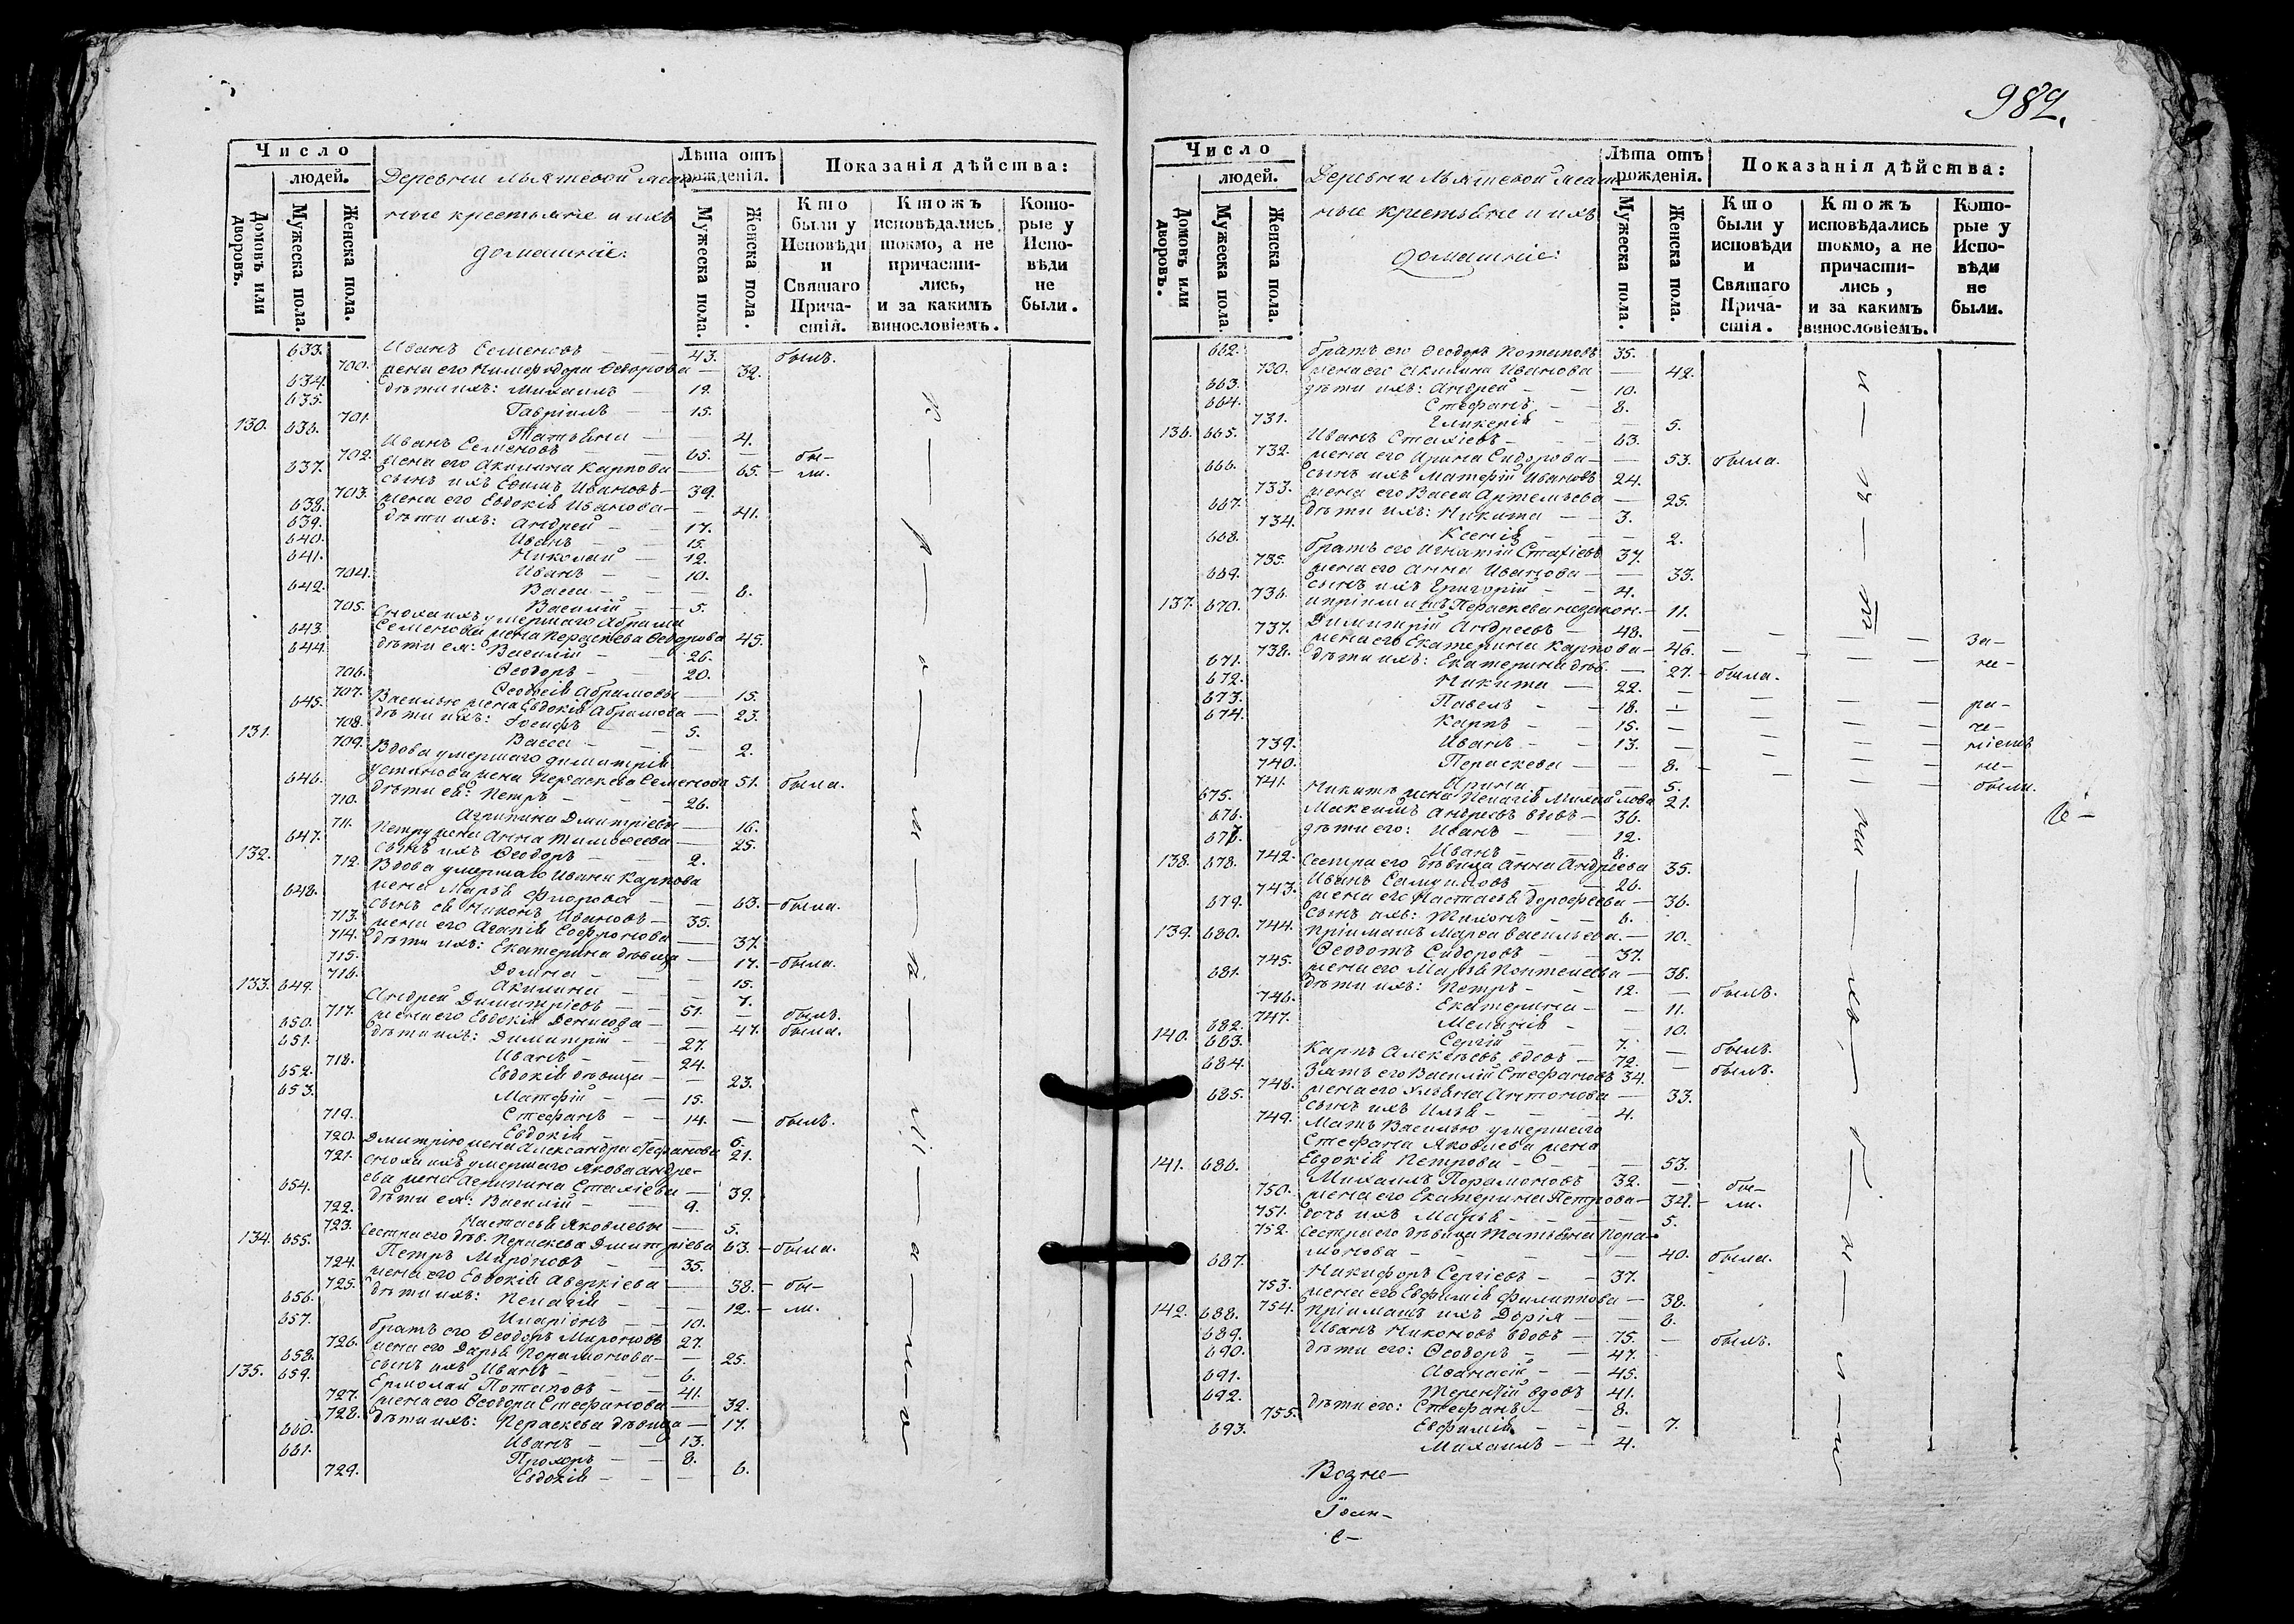 982.
Число
людей.
Домовъ или дворовъ.
Мужеска пола.
Женска пола.
Деревни
ные крестьяне и ихъ
домашніе:
Лѣта отъ рожденія.
Мужеска пола.
Женска пола.
Показанія дѣйства:
Кто были у Исповѣди и Святаго Прича-стія.
Ктожъ исповѣдались токмо, а не причасти-лись, и за какимъ винословіемъ.
Кото-рые у Испо-вѣди не были.
633. Иванъ Семеновъ — 43. былъ.
700. жена его Нимфодора Ѳедорова — 32.
634. дѣти ихъ: Михаилъ — 19.
635. Гавріилъ — 15.
701. Татьяна — 4.
130. 636. Иванъ Семеновъ — 65. бы-
702. жена его Акилина Карпова — 65. — ли.
637. сынъ ихъ Ефимъ Ивановъ — 39.
703. жена его Евдокія Иванова — 41.
638. дѣти ихъ: Андрей — 17.
639. Иванъ — 15.
640. Николай — 12.
641. Иванъ — 10.
704. Васса — 6.
642. Василій — 5.
Сноха ихъ умершаго Абрама
705. Семенова жена Пераскева Ѳедорова 45.
643. дѣти ея: Василій — 26.
644. Ѳеодоръ — 20.
706. Ѳеодосія Абрамовы — 15.
707. Василью жена Евдокія Абрамова — 23.
645. дѣти ихъ: Іосифъ — 5.
708. Васса — 2.
131. Вдова умершаго Димитрія
709. Устинова жена Пераскева Семенова 51. была.
646. дѣти ея: Петръ — 26.
710. Агрипина Дмитріевы — 16.
711. Петру жена Анна Тимоѳеева — 25.
647. сынъ ихъ Ѳеодоръ — 2.
132. Вдова умершаго Ивана Карпова
712. жена Марья Фторова — 63. — была.
648. сынъ ея Никонъ Ивановъ — 35.
713. жена его Агапія Софронова — 37.
714. дѣти ихъ: Екатерина дѣвица — 17. — была.
715. Домна — 15.
716. Акилина — 7.
133. 649. Андрей Димитріевъ — 51. — былъ.
717. жена его Евдокія Денисова — 47. была.
650. дѣти ихъ: Димитрій — 27.
651. Иванъ — 24.
718. Евдокія дѣвица — 23.
652. Матфій — 15.
653. Стефанъ — 14. — былъ.
719. Евдокія — 6.
720. Дмитрію жена Александра Стефанова 21.
721. сноха ихъ умершаго Якова Андре-
ева жена Агрипина Стахіева — 39.
654. дѣти ея: Василій — 9.
722. Настасья Яковлевы — 5.
723. Сестра его дѣв. Пераскева Дмитріева 63. — была.
134. 655. Петръ Мироновъ — 35.
724. жена его Евдокія Аверкіева — 38. — бы-
725. дѣти ихъ: Пелагія — 12. — ли.
656. Иларіонъ — 10.
657. братъ его Ѳеодоръ Мироновъ 27.
726. жена его Дарья Парамонова — 25.
658. сынъ ихъ Иванъ — 6.
135. 659. Ермолай Потаповъ — 41.
727. жена его Ѳеодора Стефанова — 32.
728. дѣти ихъ: Пераскева дѣвица — 17.
660. Иванъ — 13.
661. Прохоръ — 8.
729. Евдокія — 6.
Число
людей.
Домовъ или дворовъ.
Мужеска пола.
Женска пола.
Деревни
ные крестьяне и ихъ
домашніе:
Лѣта отъ рожденія.
Мужеска пола.
Женска пола.
Показанія дѣйства:
Кто были у исповѣди и Святаго Прича-стія.
Ктожъ исповѣдались токмо, а не причасти-лись, и за какимъ винословіемъ.
Кото-рые у Испо-вѣди не были.
662. братъ его Ѳеодоръ Потаповъ 35.
730. жена его Акилина Иванова — 42.
663. дѣти ихъ: Андрей — 10.
664. Стефанъ — 8.
731. Гликерія — 5.
136. 665. Иванъ Стахіевъ — 63.
732. жена его Ирина Сидорова — 53. была.
666. сынъ ихъ Матфій Ивановъ 24.
733. жена его Васса Антельева — 25.
667. дѣти ихъ: Никита — 3.
734. Ксенія — 2.
668. братъ его Игнатій Стахіевъ 37.
735. жена его Анна Иванова — 33.
669. сынъ ихъ Григорій — 4.
736. Пераскева незакон. — 11.
137. 670. Димитрій Андреевъ — 48. — за-
737. жена его Екатерина Карпова — 46. — не-
738. дѣти ихъ: Екатерина дѣв. — 27. — была.
671. Никита — 22.
672. Павелъ — 18. — ра-
673. Карпъ — 15. — че-
674. Иванъ — 13. — ніемъ
739. Пераскева — 8. — не-
740. Ирина — 5. — были.
741. Никитѣ жена Пелагія Михайлова 21.
675. Максимъ Андреевъ вдовъ — 36.
676. дѣти его: Иванъ — 12.
677. Иванъ — 8.
742. Сестра его дѣвица Анна Андреева 35.
138. 678. Иванъ Самуиловъ — 26.
743. жена его Настасья Дорофеева — 36.
679. сынъ ихъ: Тихонъ — 6.
744. пріимашъ Марѳа Васильева. — 10.
139. 680. Ѳеодотъ Сидоровъ — 37.
745. жена его Марья Пантелеева — 38.
681. дѣти ихъ: Петръ — 12. — былъ.
746. Екатерина — 11.
747. Меланія — 10.
682. Сергій — 7.
140. 683. Карпъ Алексѣевъ вдовъ — 72. — былъ.
684. Зять его Василій Стефановъ 34. — былъ.
748. жена его Ульяна Антонова — 33.
685. сынъ ихъ Илья — 4.
749. Мать Василью умершаго
Стефана Яковлева жена
Евдокія Петрова — 53.
141. 686. Михаилъ Парамоновъ 32. — бы-
750. жена его Екатерина Петрова — 34. — ли.
751. дочь ихъ Марья — 5.
752. Сестра его дѣвица Татьяна Пара-
монова — 40. была.
687. Никифоръ Сергіевъ — 37.
753. жена его Евфимія Филиппова — 38.
754. пріимашъ ихъ Дарія — 8.
142. 688. Иванъ Никоновъ вдовъ — 75. — былъ.
689. дѣти его: Ѳеодоръ — 47.
690. Аѳанасій — 45.
691. Терентій вдовъ 41.
692. дѣти его: Стефанъ — 8.
755. Евфимія — 7.
693. Михаилъ — 4.